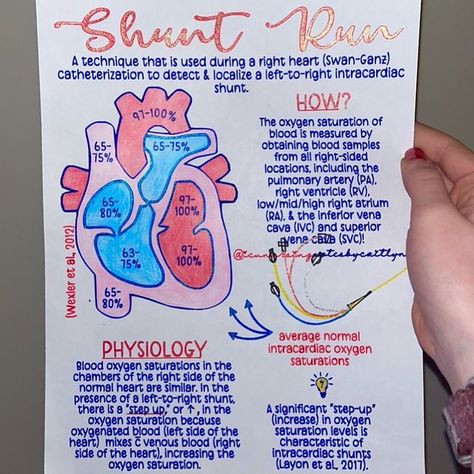 Shunt Run
A technique that is used during a right heart (Swan-Ganz)
catheterization to detect & localize a left-to-right intracardiac
shunt.
97-100%
65-
75%
65-75%
65-
80%
97-
100%
63-
75%
97-
100%
65-
80%
(Wexler et al., 2012)
HOW?
The oxygen saturation of
blood is measured by
obtaining blood samples
from all right-sided
locations, including the
pulmonary artery (PA),
right ventricle (RV),
low/mid/high right atrium
(RA), & the inferior vena
cava (IVC) and superior
vena cava (SVC)!
average normal
intracardiac oxygen
saturations
PHYSIOLOGY
Blood oxygen saturations in the
chambers of the right side of the
normal heart are similar. In the
presence of a left-to-right shunt,
there is a "step up," or ↑, in the
oxygen saturation because
oxygenated blood (left side of the
heart) mixes c̅ venous blood (right
side of the heart), increasing the
oxygen saturation.
A significant "step-up"
(increase) in oxygen
saturation levels is
characteristic of
intracardiac shunts
(Leyon et al., 2017).